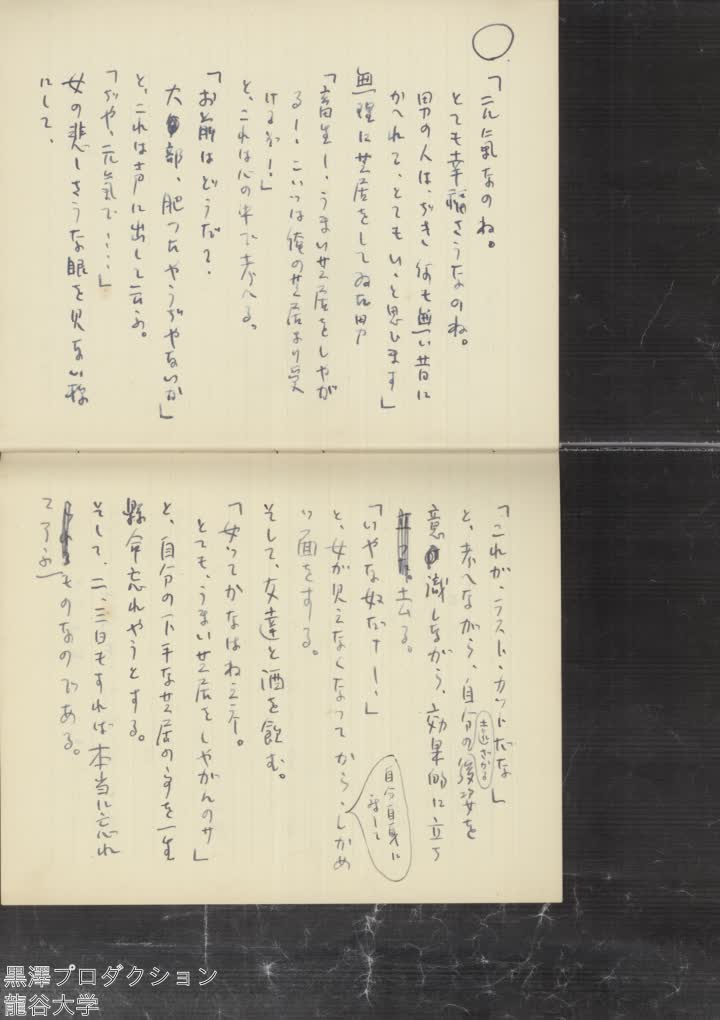 ○
「元気なのね。
とても幸福さうなのね。
男の人は、ぢき、何も無い昔に
かへれて、とてもいゝと思ひます」
無理に芝居をしてゐた男
「畜生ー、うまい芝居をしやが
るー、こいつは俺の芝居より受
けるぞー！」
と、これは心の中で考へる。
「お前はどうだて、
大部、肥つたやうぢやないか」
と、これは声に出して云ふ。
「ぢや、元気で‥‥」
女の悲しさうな眼を見ない様
にして、
「これが、ラスト・カットだな」
と、考へながら、自分の遠ざかる後姿を
意識しながら、効果的に立ち
去る。
「いやな奴だナー、」
と、女が見えなくなつてから、自分自身に対して しかめ
つ面をする。
そして、友達と酒を飲む。
「女つてかなはねえネ。
とても、うまい芝居をしやがんのサ」
と、自分の下手な芝居の事を一生
懸命忘れやうとする。
そして、二、三日もすれば本当に忘れ
て了ふ
ものなのである。
黒澤プロダクション
龍谷大学